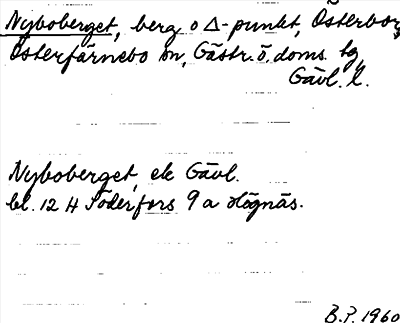 Nyboberget, berg o Δ-punkt, Österborg
Österfärnebo sn, Gästr. ö. doms. tg
Gävl. l.
Nyboberget, ek Gävl.
bl. 12 H Söderfors 9 a Högnäs.
B.P. 1960